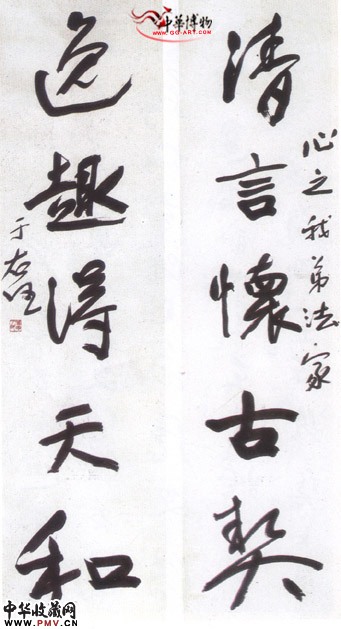 中華博物
WWW.GG-ART.COM
心之我弟法家
清言懷古契
逸趣得天和
于右任
中华收藏网
www.PMV.CN